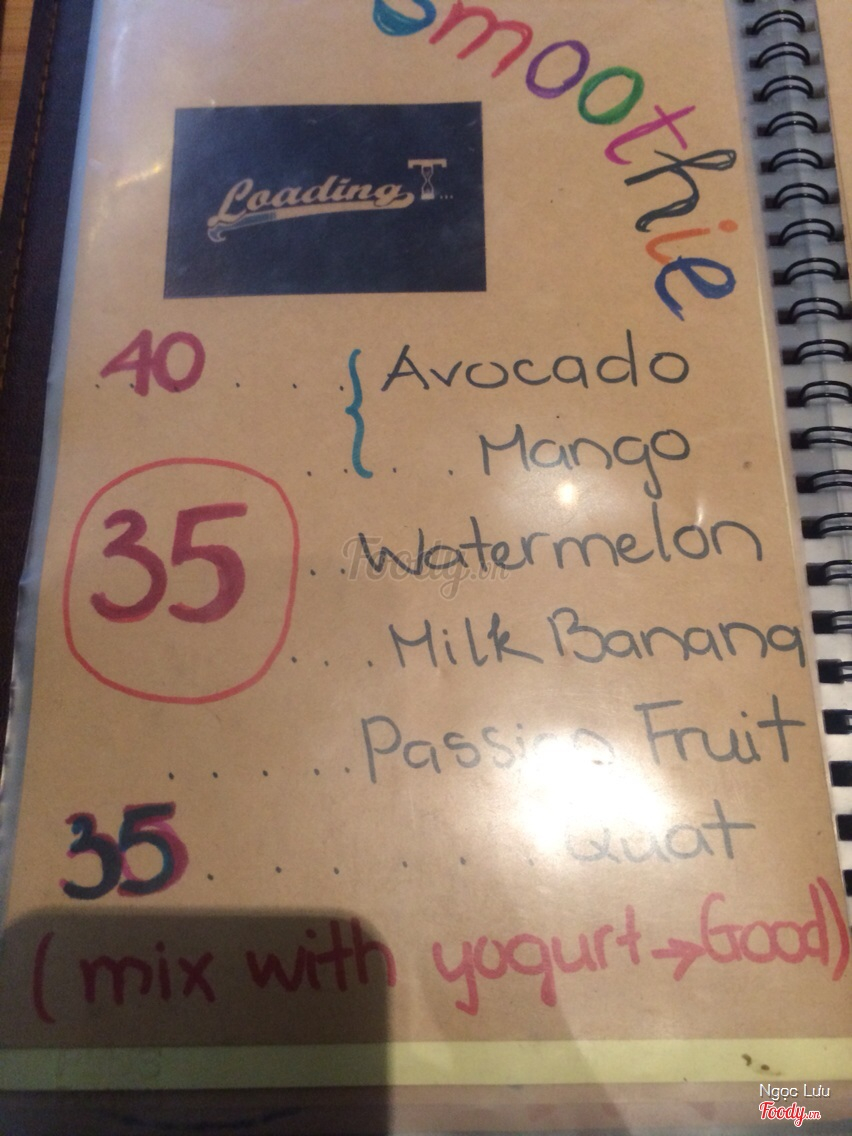 Smoothie
Loading T...
40 . . . . { Avocado
. . . . Mango
35 . . Watermelon
. . . Milk Banana
. . . . . Passion Fruit
35 . . . . . . . Quat
(mix with yogurt → Good)
Foody.vn
Ngọc Lưu
Foody.vn